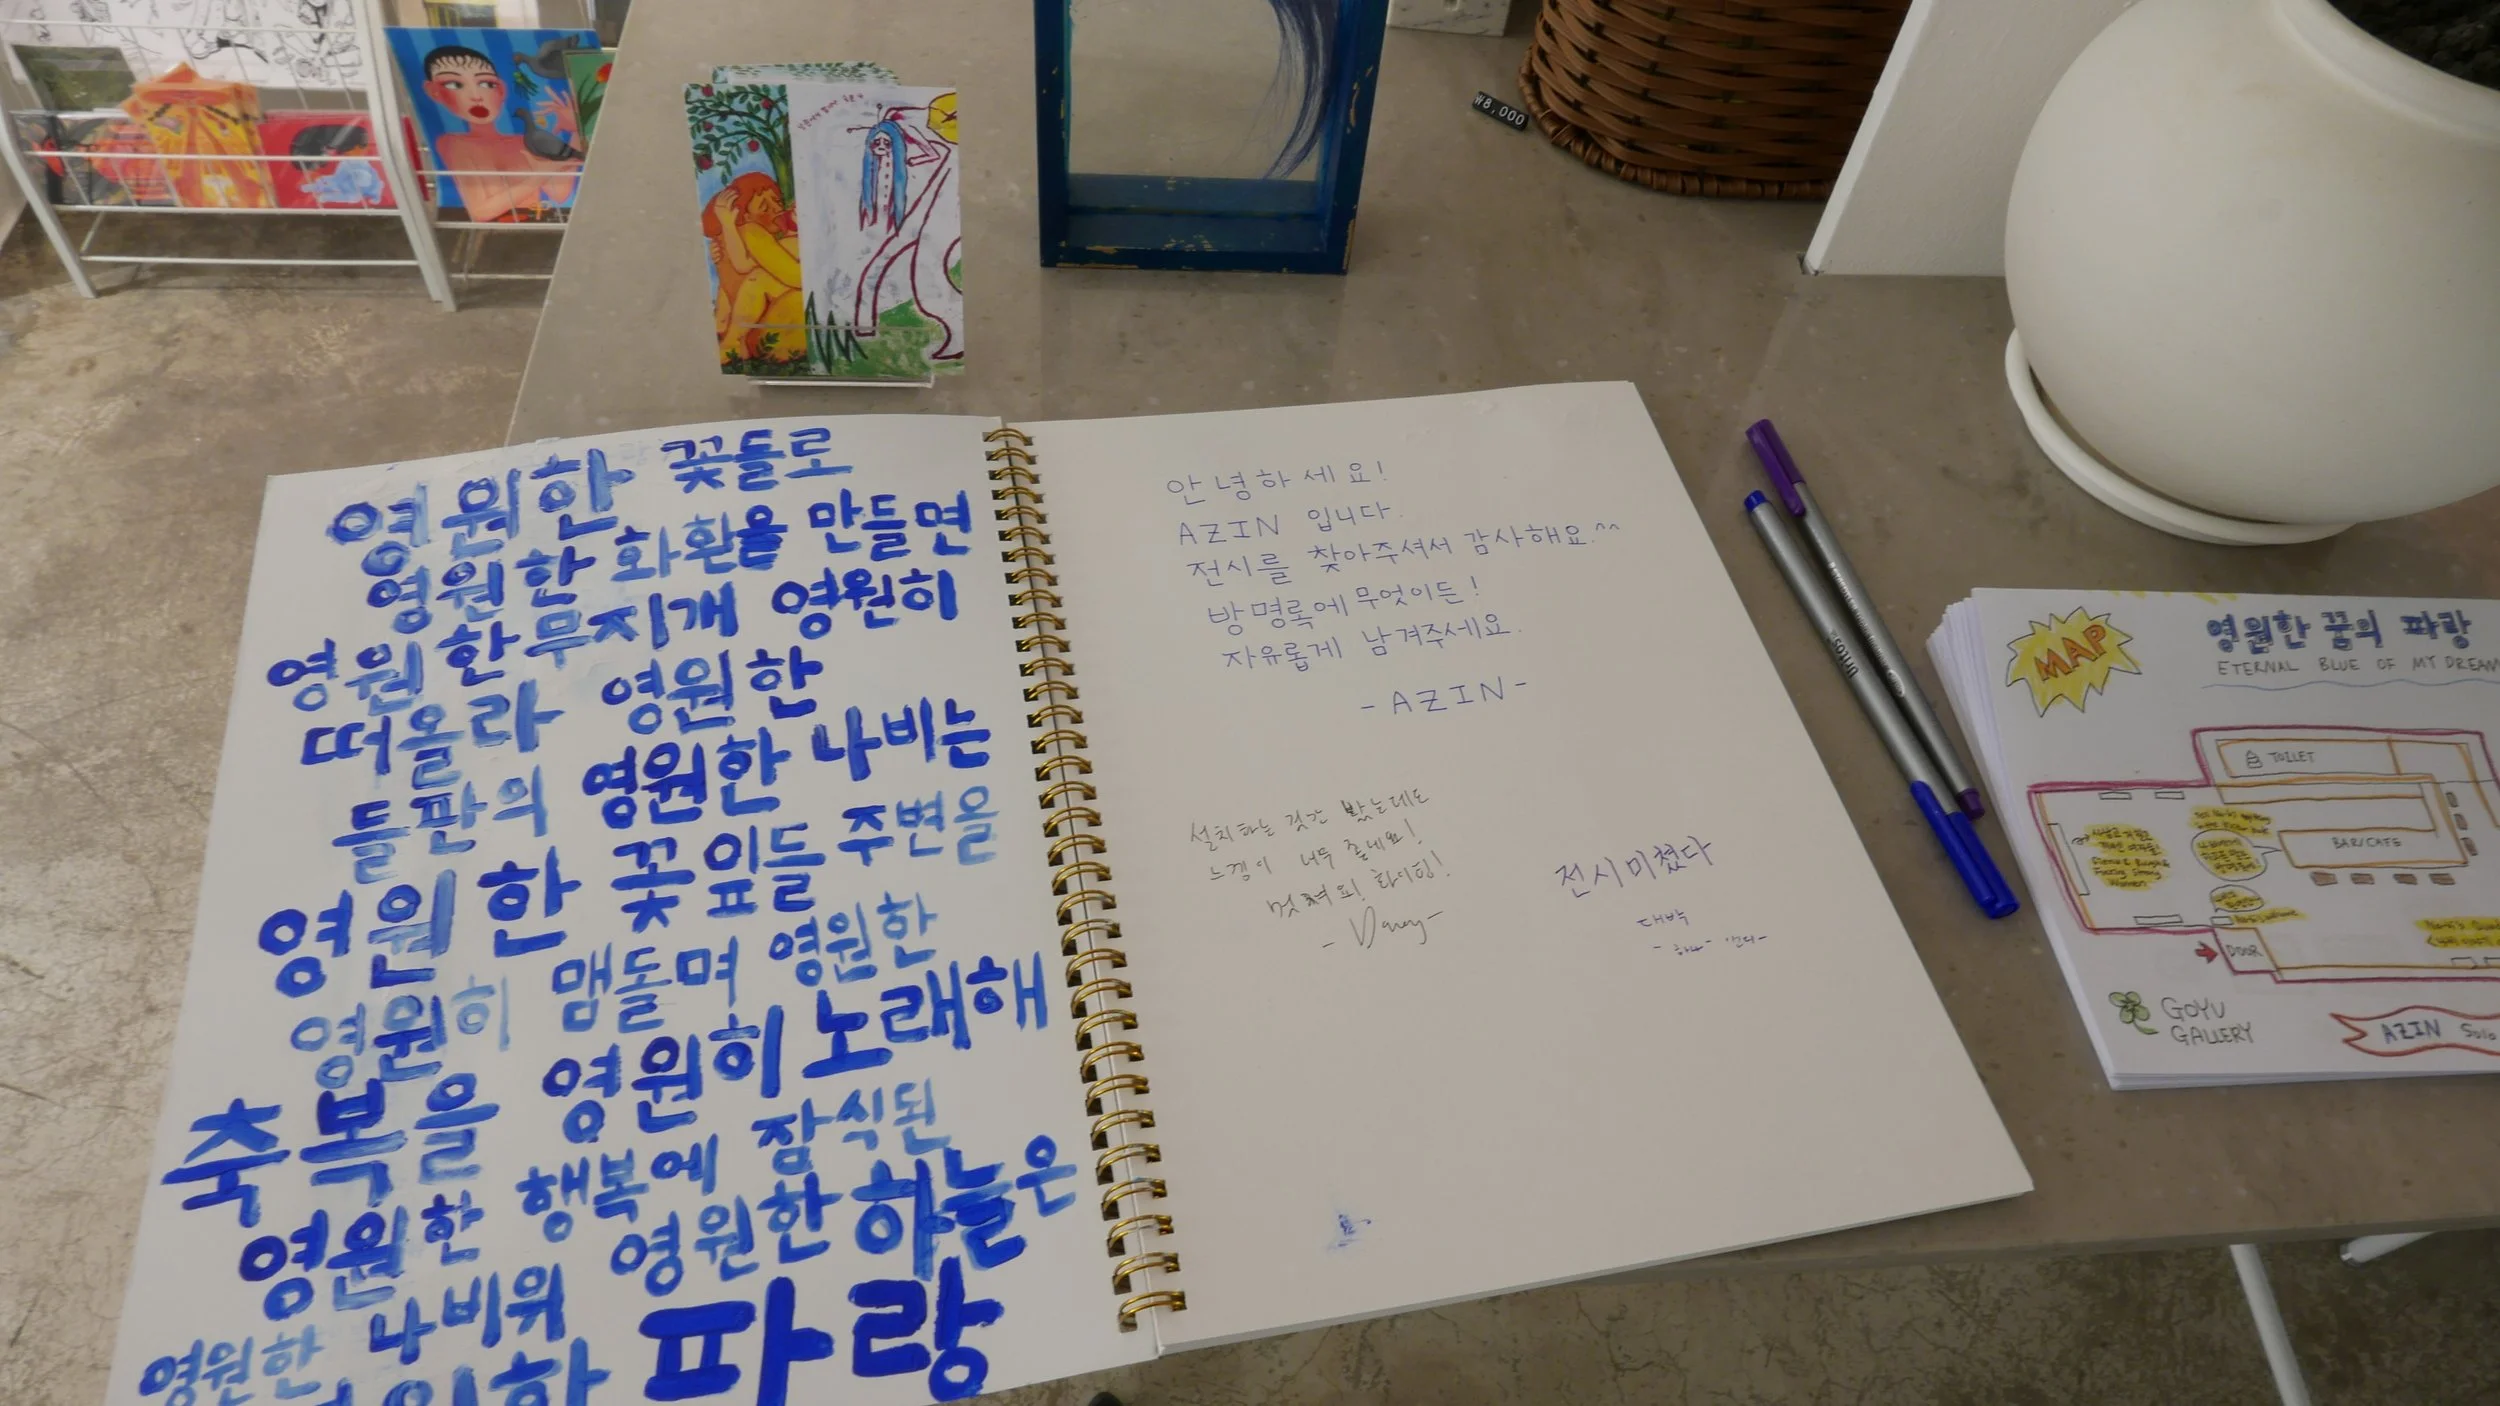 ₩8,000
영원한 꽃들로
영원한 화환을 만들면
영원한 무지개 영원히
떠올라 영원한
들판의 영원한 나비는
영원한 꽃잎들 주변을
영원히 맴돌며 영원한
축복을 영원히 노래해
영원한 행복에 잠식된
나비위 영원한 하늘은
영원한
파랑
안녕하세요!
AZIN 입니다.
전시를 찾아주셔서 감사해요.^^
방명록에 무엇이든!
자유롭게 남겨주세요.
- AZIN -
설치하는 것간 봤는데도
느낌이 너무 좋네요!
멋져요! 화이팅!
전시미쳤다
대박
MAP
영원한 꿈의 파랑
ETERNAL BLUE OF MY DREAM
TOILET
BAR/CAFE
DOOR
GOYU
GALLERY
AZIN Solo